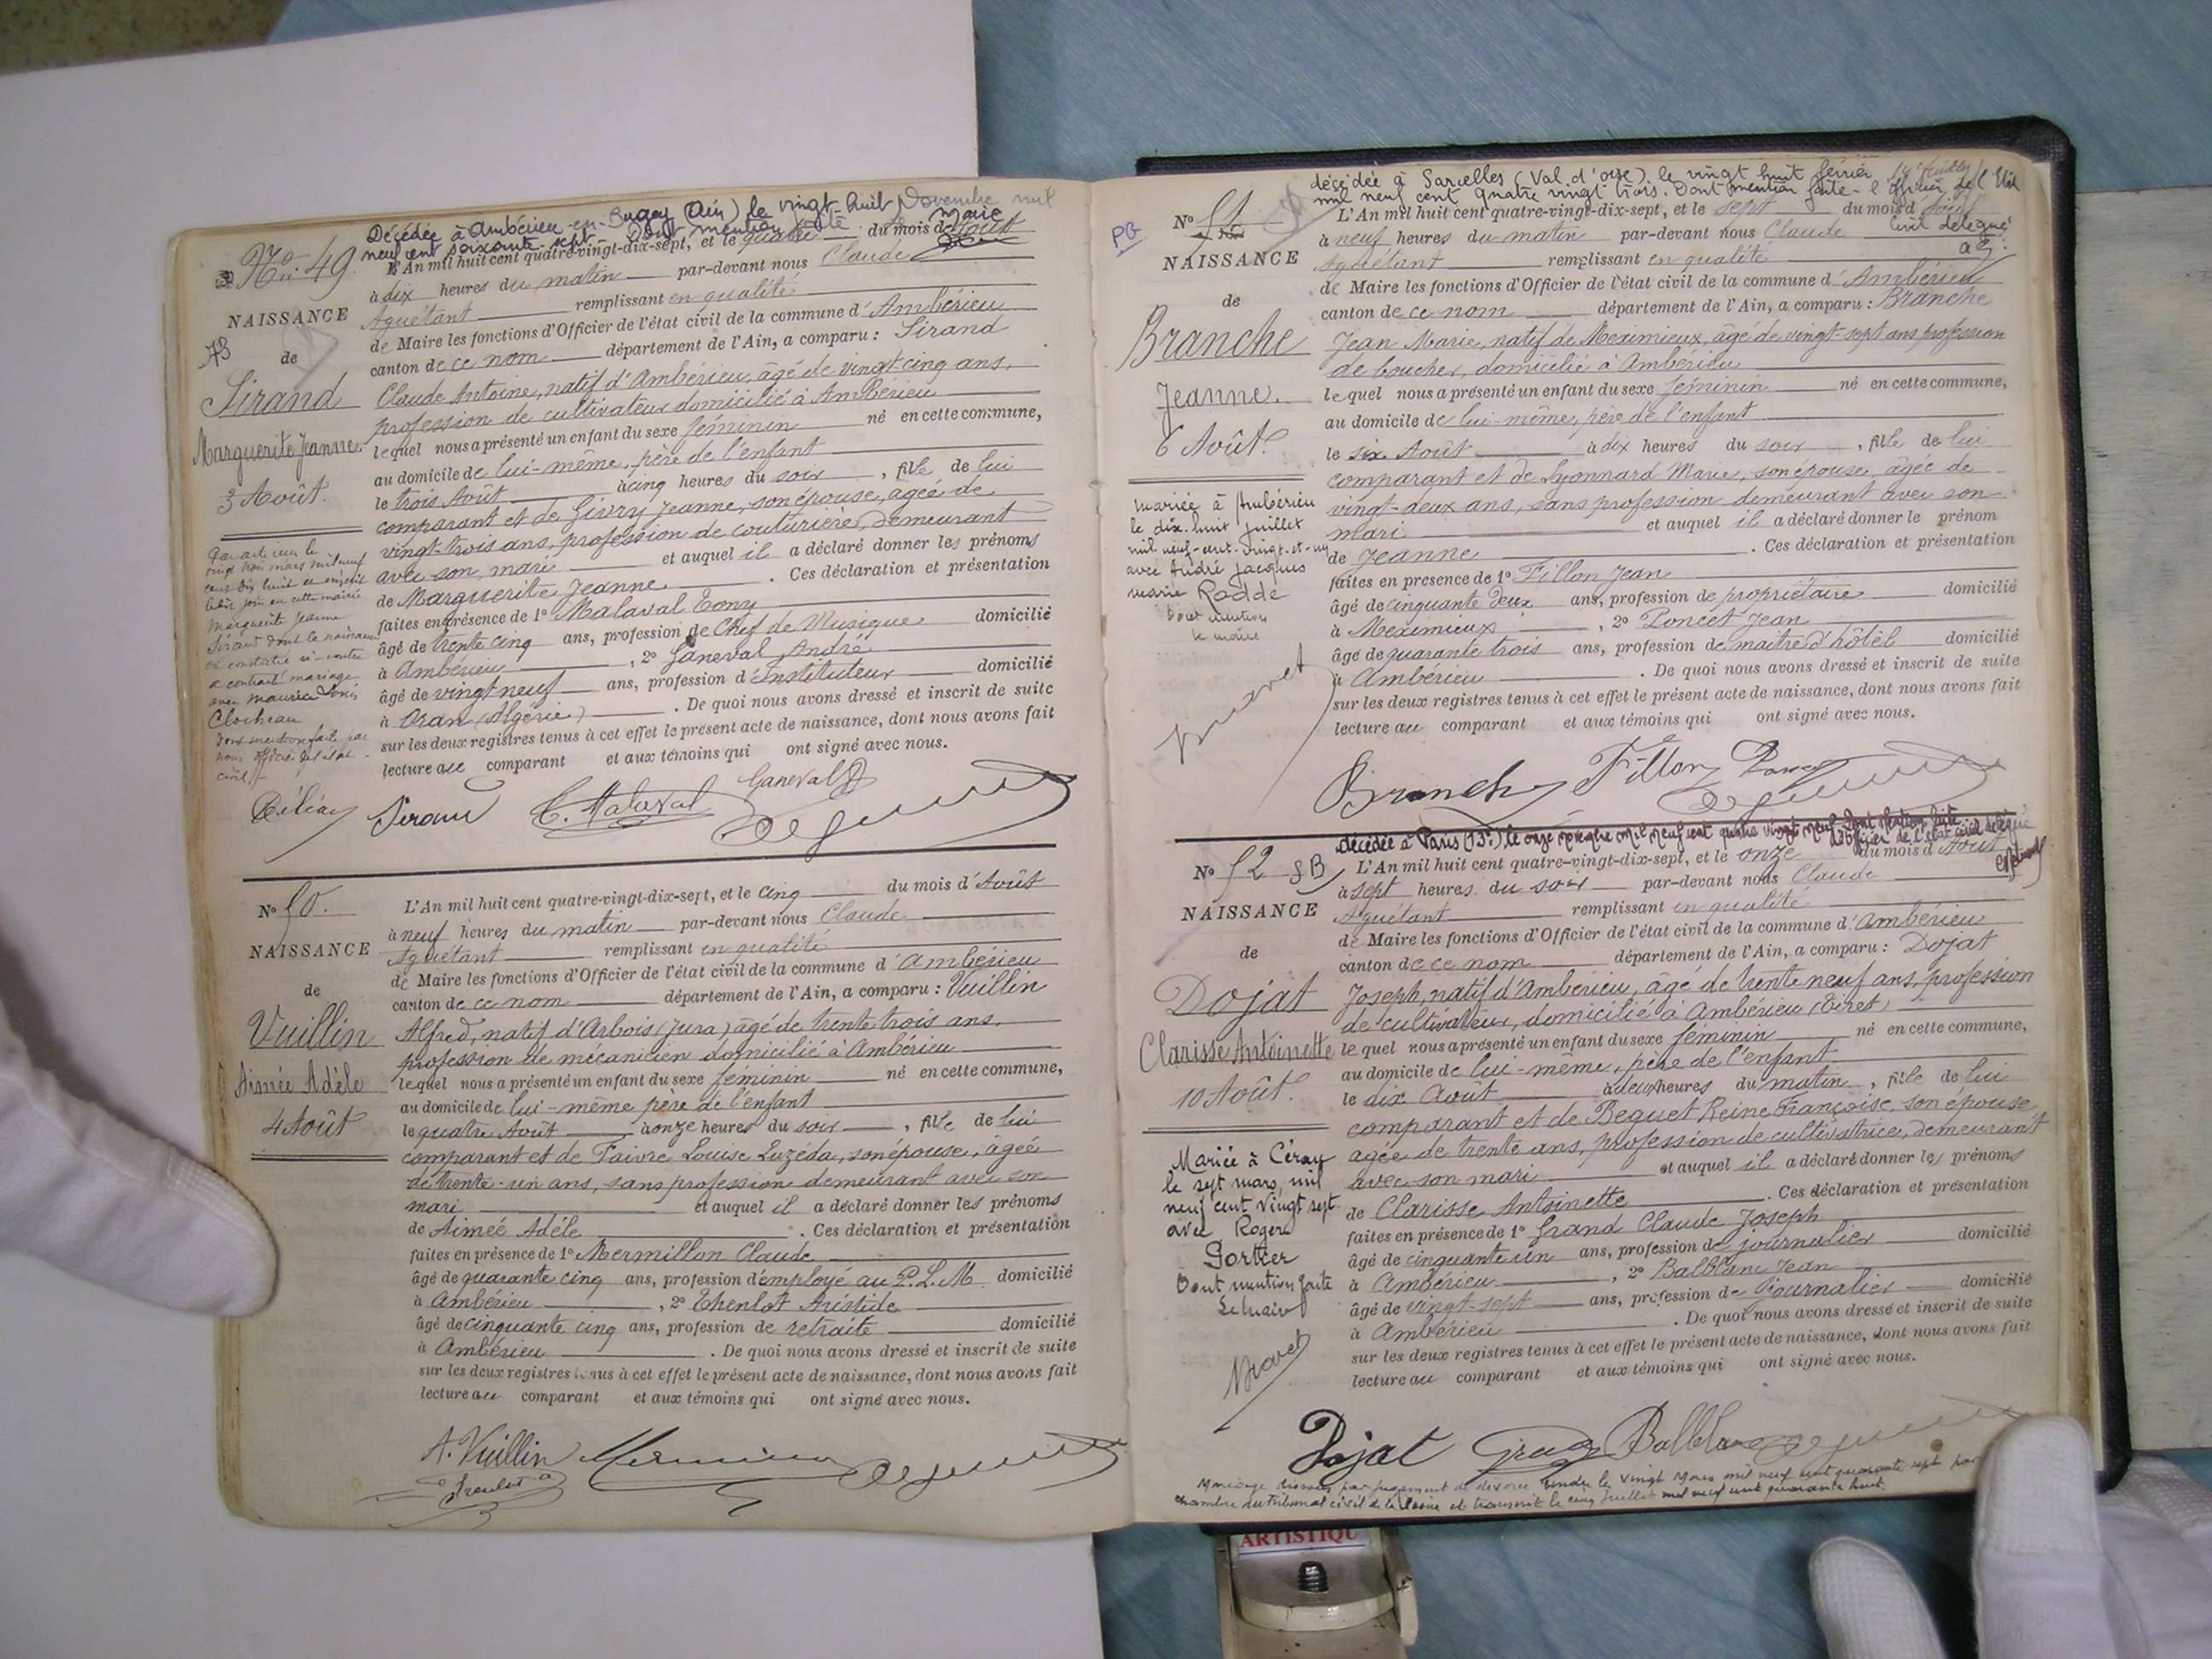 Décédée à Ambérieu-en-Bugey (Ain) le vingt-huit Novembre mil
neuf cent soixante-sept. Dont mention faite
No 49.
L'An mil huit cent quatre-vingt-dix-sept, et le quatre du mois d'Août
à dix heures du matin par-devant nous Claude
NAISSANCE
Aguétant remplissant en qualité
de Maire les fonctions d'Officier de l'état civil de la commune d'Ambérieu
de
canton de ce nom département de l'Ain, a comparu : Sirand
Sirand
Claude Antoine, natif d'Ambérieu, âgé de vingt-cinq ans,
profession de cultivateur domicilié à Ambérieu
Marguerite Jeanne
lequel nous a présenté un enfant du sexe féminin né en cette commune,
au domicile de lui-même, père de l'enfant
3 Août.
le trois Août à cinq heures du soir, fille de lui
comparant et de Givry Jeanne, son épouse, âgée de
vingt-trois ans, profession de couturière, demeurant
avec son mari et auquel il a déclaré donner les prénoms
de Marguerite Jeanne. Ces déclaration et présentation
faites en présence de 1° Malaval Tony
âgé de trente cinq ans, profession de Chef de Musique domicilié
à Ambérieu, 2° Ganeval André
âgé de vingt neuf ans, profession d'instituteur domicilié
à Oran (Algérie). De quoi nous avons dressé et inscrit de suite
sur les deux registres tenus à cet effet le présent acte de naissance, dont nous avons fait
lecture au comparant et aux témoins qui ont signé avec nous.
Marguerite Jeanne
Sirand dont la naissance
est constatée ci-contre
a contracté mariage
avec Maurice Louis
Clocheau
dont mention faite par
nous officier de l'état
civil
Sirand C. Malaval Ganeval
No 50.
L'An mil huit cent quatre-vingt-dix-sept, et le cinq du mois d'Août
à neuf heures du matin par-devant nous Claude
NAISSANCE
Aguétant remplissant en qualité
de Maire les fonctions d'Officier de l'état civil de la commune d'Ambérieu
de
canton de ce nom département de l'Ain, a comparu : Vuillin
Vuillin
Alfred, natif d'Arbois (Jura) âgé de trente trois ans,
profession de mécanicien domicilié à Ambérieu
Aimée Adèle
lequel nous a présenté un enfant du sexe féminin né en cette commune,
au domicile de lui-même père de l'enfant
4 Août
le quatre Août à onze heures du soir, fille de lui
comparant et de Faivre Louise Luzéda, son épouse, âgée
de trente-un ans, sans profession demeurant avec son
mari et auquel il a déclaré donner les prénoms
de Aimée Adèle. Ces déclaration et présentation
faites en présence de 1° Mermillon Claude
âgé de quarante cinq ans, profession d'employé au P.L.M. domicilié
à Ambérieu, 2° Thenlot Aristide
âgé de cinquante cinq ans, profession de retraité domicilié
à Ambérieu. De quoi nous avons dressé et inscrit de suite
sur les deux registres tenus à cet effet le présent acte de naissance, dont nous avons fait
lecture au comparant et aux témoins qui ont signé avec nous.
A. Vuillin
décédée à Sarcelles (Val d'oise) le vingt huit février
mil neuf cent quatre vingt trois. Dont mention faite - l'officier de l'Etat
Civil délégué
PB
No 51
L'An mil huit cent quatre-vingt-dix-sept, et le sept du mois d'Août
à neuf heures du matin par-devant nous Claude
NAISSANCE
Aguétant remplissant en qualité
de Maire les fonctions d'Officier de l'état civil de la commune d'Ambérieu
de
canton de ce nom département de l'Ain, a comparu : Branche
Branche
Jean Marie, natif de Meximieux, âgé de vingt-sept ans profession
de boucher, domicilié à Ambérieu
Jeanne.
lequel nous a présenté un enfant du sexe féminin né en cette commune,
au domicile de lui-même, père de l'enfant
6 Août.
le six Août à dix heures du soir, fille de lui
comparant et de Lyonnard Marie, son épouse, âgée de
vingt-deux ans, sans profession demeurant avec son
mari et auquel il a déclaré donner le prénom
de Jeanne. Ces déclaration et présentation
faites en présence de 1° Fillon Jean
âgé de cinquante deux ans, profession de propriétaire domicilié
à Meximieux, 2° Poncet Jean
âgé de quarante trois ans, profession de maître d'hôtel domicilié
à Ambérieu. De quoi nous avons dressé et inscrit de suite
sur les deux registres tenus à cet effet le présent acte de naissance, dont nous avons fait
lecture au comparant et aux témoins qui ont signé avec nous.
mariée à Ambérieu
le dix-huit juillet
mil neuf-cent-vingt-et-un
avec André Jacques
Marie Rodde
Dont mention
le maire
Branche Fillon Poncet
décédée à Paris (13e) le onze mil neuf cent quatre vingt neuf. Dont mention faite
L'officier de l'état civil délégué
No 52 JB
L'An mil huit cent quatre-vingt-dix-sept, et le onze du mois d'Août
à sept heures du soir par-devant nous Claude
NAISSANCE
Aguétant remplissant en qualité
de Maire les fonctions d'Officier de l'état civil de la commune d'Ambérieu
de
canton de ce nom département de l'Ain, a comparu : Dojat
Dojat
Joseph, natif d'Ambérieu, âgé de trente neuf ans, profession
de cultivateur, domicilié à Ambérieu (Tiret)
Clarisse Antoinette
lequel nous a présenté un enfant du sexe féminin né en cette commune,
au domicile de lui-même, père de l'enfant
10 Août.
le dix Août à deux heures du matin, fille de lui
comparant et de Beguet Reine Françoise, son épouse,
âgée de trente ans, profession de cultivatrice, demeurant
avec son mari et auquel il a déclaré donner les prénoms
de Clarisse Antoinette. Ces déclaration et présentation
faites en présence de 1° Grand Claude Joseph
âgé de cinquante un ans, profession de journalier domicilié
à Ambérieu, 2° Balblanc Jean
âgé de vingt-sept ans, profession de journalier domicilié
à Ambérieu. De quoi nous avons dressé et inscrit de suite
sur les deux registres tenus à cet effet le présent acte de naissance, dont nous avons fait
lecture au comparant et aux témoins qui ont signé avec nous.
Mariée à
le sept mars mil
neuf cent vingt sept
avec Roger
Portier
Dont mention faite
Le maire
Dojat Grand Balblanc
Mariage dissous par jugement de divorce rendu le vingt Mars mil neuf cent quarante sept par
chambre du tribunal civil de la Seine et transcrit le cinq juillet mil neuf cent quarante huit.
ARTISTIQU